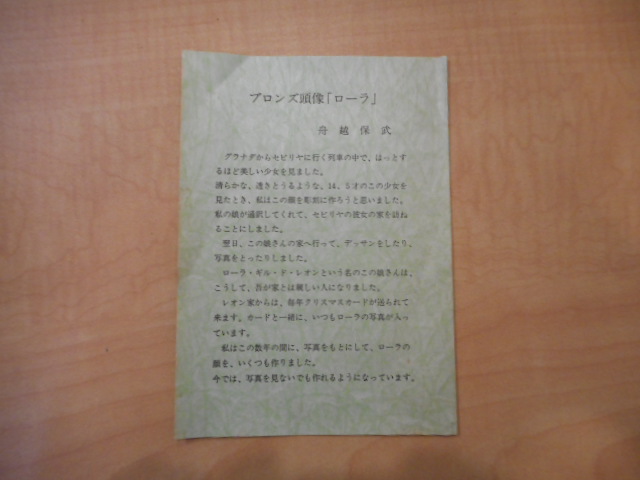 ブロンズ頭像「ローラ」
舟越保武
グラナダからセビリヤに行く列車の中で、はっとす
るほど美しい少女を見ました。
清らかな、透きとうるような、14、5才のこの少女を
見たとき、私はこの顔を彫刻に作ろうと思いました。
私の娘が通訳してくれて、セビリヤの彼女の家を訪ね
ることにしました。
翌日、この娘さんの家へ行って、デッサンをしたり、
写真をとったりしました。
ローラ・ギル・ド・レオンという名のこの娘さんは、
こうして、吾が家とは親しい人になりました。
レオン家からは、毎年クリスマスカードが送られて
来ます。カードと一緒に、いつもローラの写真が入っ
ています。
私はこの数年の間に、写真をもとにして、ローラの
顔を、いくつも作りました。
今では、写真を見ないでも作れるようになっています。